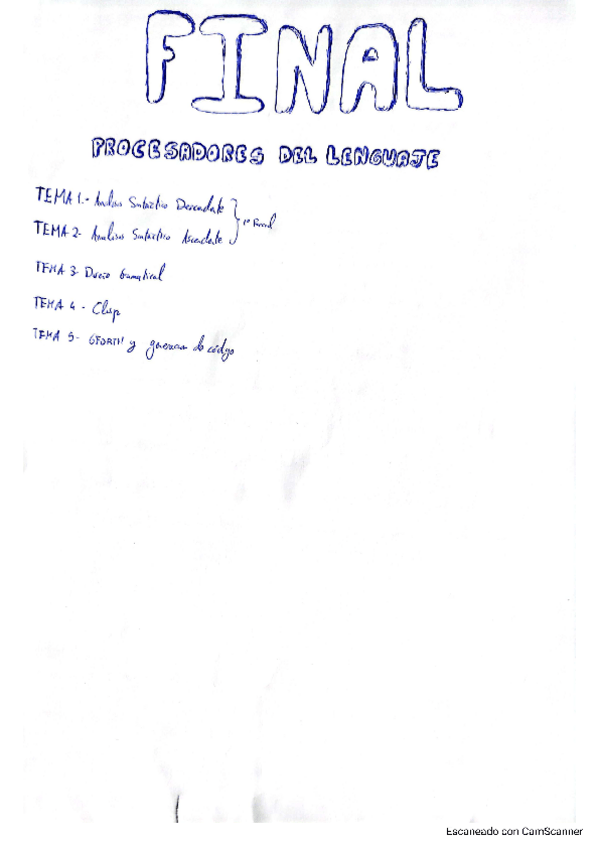 FINAL
PROCESADORES DEL LENGUAJE
TEMA 1.- Análisis Sintáctico Descendente
TEMA 2- Análisis Sintáctico Ascendente
1er Parcial
TEMA 3- Diseño Gramatical
TEMA 4 - Clasp
TEMA 5- GFORTH y generación de código
Escaneado con CamScanner